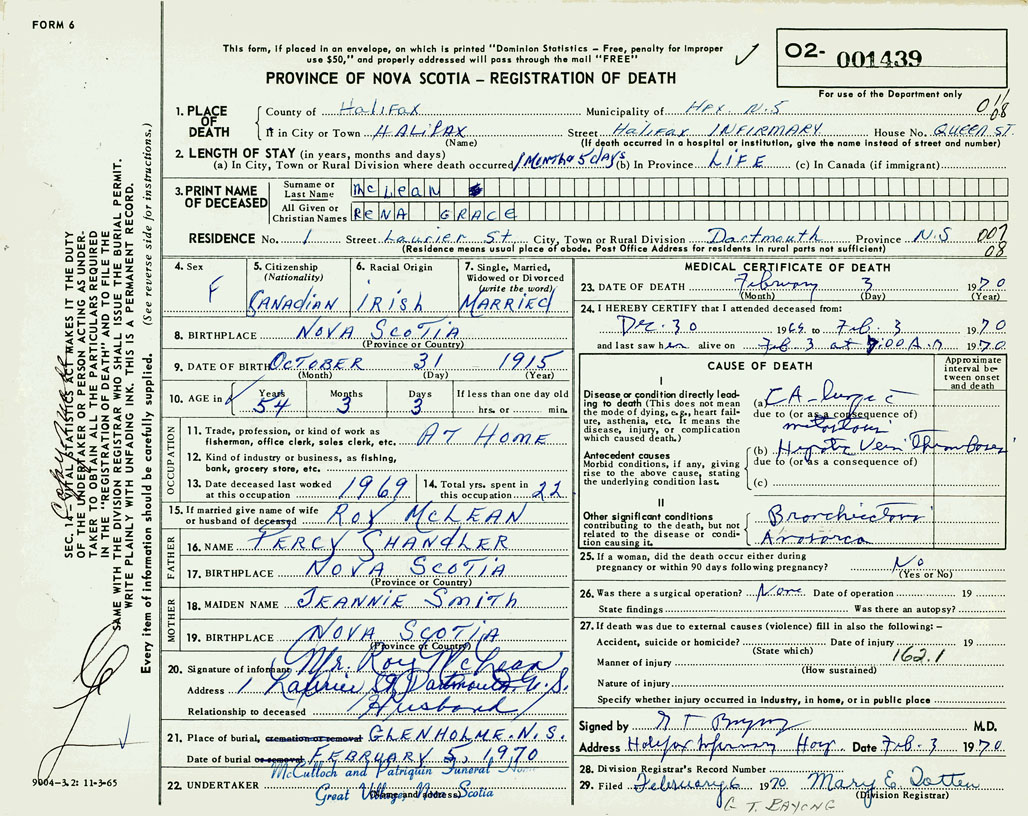 FORM 6
This form, if placed in an envelope, on which is printed "Dominion Statistics – Free, penalty for improper
use $50," and properly addressed will pass through the mail "FREE"
PROVINCE OF NOVA SCOTIA – REGISTRATION OF DEATH
O2- 001439
For use of the Department only
1. PLACE OF DEATH
County of Halifax Municipality of Hfx. N.S
If in City or Town HALIFAX Street Halifax INFIRMARY House No. QUEEN ST.
(Name) (If death occurred in a hospital or institution, give the name instead of street and number)
2. LENGTH OF STAY (in years, months and days)
(a) In City, Town or Rural Division where death occurred 1 Month 5 days (b) In Province LIFE (c) In Canada (if immigrant)
3. PRINT NAME OF DECEASED
Surname or Last Name McLean
All Given or Christian Names RENA GRACE
RESIDENCE No. 1 Street Laurier St City, Town or Rural Division Dartmouth Province N.S
(Residence means usual place of abode. Post Office Address for residents in rural parts not sufficient)
007
08
4. Sex F
5. Citizenship (Nationality) CANADIAN
6. Racial Origin IRISH
7. Single, Married, Widowed or Divorced (write the word) MARRIED
8. BIRTHPLACE NOVA SCOTIA
(Province or Country)
9. DATE OF BIRTH OCTOBER 31 1915
(Month) (Day) (Year)
10. AGE in Years 54 Months 3 Days 3 If less than one day old hrs. or min.
OCCUPATION
11. Trade, profession, or kind of work as fisherman, office clerk, sales clerk, etc. AT HOME
12. Kind of industry or business, as fishing, bank, grocery store, etc.
13. Date deceased last worked at this occupation 1969
14. Total yrs. spent in this occupation 22
15. If married give name of wife or husband of deceased ROY McLEAN
FATHER
16. NAME PERCY
17. BIRTHPLACE NOVA SCOTIA
(Province or Country)
MOTHER
18. MAIDEN NAME JEANNIE Smith
19. BIRTHPLACE NOVA SCOTIA
(Province or Country)
20. Signature of informant Mr. Roy McLean
Address 1 Laurier St Dartmouth N.S.
Relationship to deceased Husband
21. Place of burial, cremation or removal GLENHOLME. N.S.
Date of burial or removal FEBRUARY 5, 1970
22. UNDERTAKER McCulloch and Patriquin Funeral Home
Great Village, Nova Scotia
(Name and address)
MEDICAL CERTIFICATE OF DEATH
23. DATE OF DEATH February 3 1970
(Month) (Day) (Year)
24. I HEREBY CERTIFY that I attended deceased from:
Dec. 30 1969 to Feb. 3 1970
and last saw her alive on Feb 3 at 7:00 A.M 1970
CAUSE OF DEATH
Approximate interval between onset and death
I
Disease or condition directly leading to death (This does not mean the mode of dying, e.g., heart failure, asthenia, etc. It means the disease, injury, or complication which caused death.)
(a) CA-lung c
due to (or as a consequence of)
Antecedent causes
Morbid conditions, if any, giving rise to the above cause, stating the underlying condition last.
(b) Hepatic Vein Thromboses
due to (or as a consequence of)
(c)
II
Other significant conditions contributing to the death, but not related to the disease or condition causing it.
Bronchiectasis
Anasarca
25. If a woman, did the death occur either during
pregnancy or within 90 days following pregnancy? No
(Yes or No)
26. Was there a surgical operation? None Date of operation 19
State findings Was there an autopsy?
27. If death was due to external causes (violence) fill in also the following:–
Accident, suicide or homicide? Date of injury 19
(State which)
Manner of injury 162.1
(How sustained)
Nature of injury
Specify whether injury occurred in Industry, in home, or in public place
Signed by G T M.D.
Address Halifax Infirmary Hosp. Date Feb. 3 1970
28. Division Registrar's Record Number
29. Filed February 6 1970 Mary E. Totten
(Division Registrar)
G. T. BAYONG
SEC. 14 – VITAL STATISTICS ACT MAKES IT THE DUTY
OF THE UNDERTAKER OR PERSON ACTING AS UNDER-
TAKER TO OBTAIN ALL THE PARTICULARS REQUIRED
IN THE "REGISTRATION OF DEATH" AND TO FILE THE
SAME WITH THE DIVISION REGISTRAR WHO SHALL ISSUE THE BURIAL PERMIT.
WRITE PLAINLY WITH UNFADING INK. THIS IS A PERMANENT RECORD.
Every item of information should be carefully supplied. (See reverse side for instructions.)
9004–3.2: 11-3-65